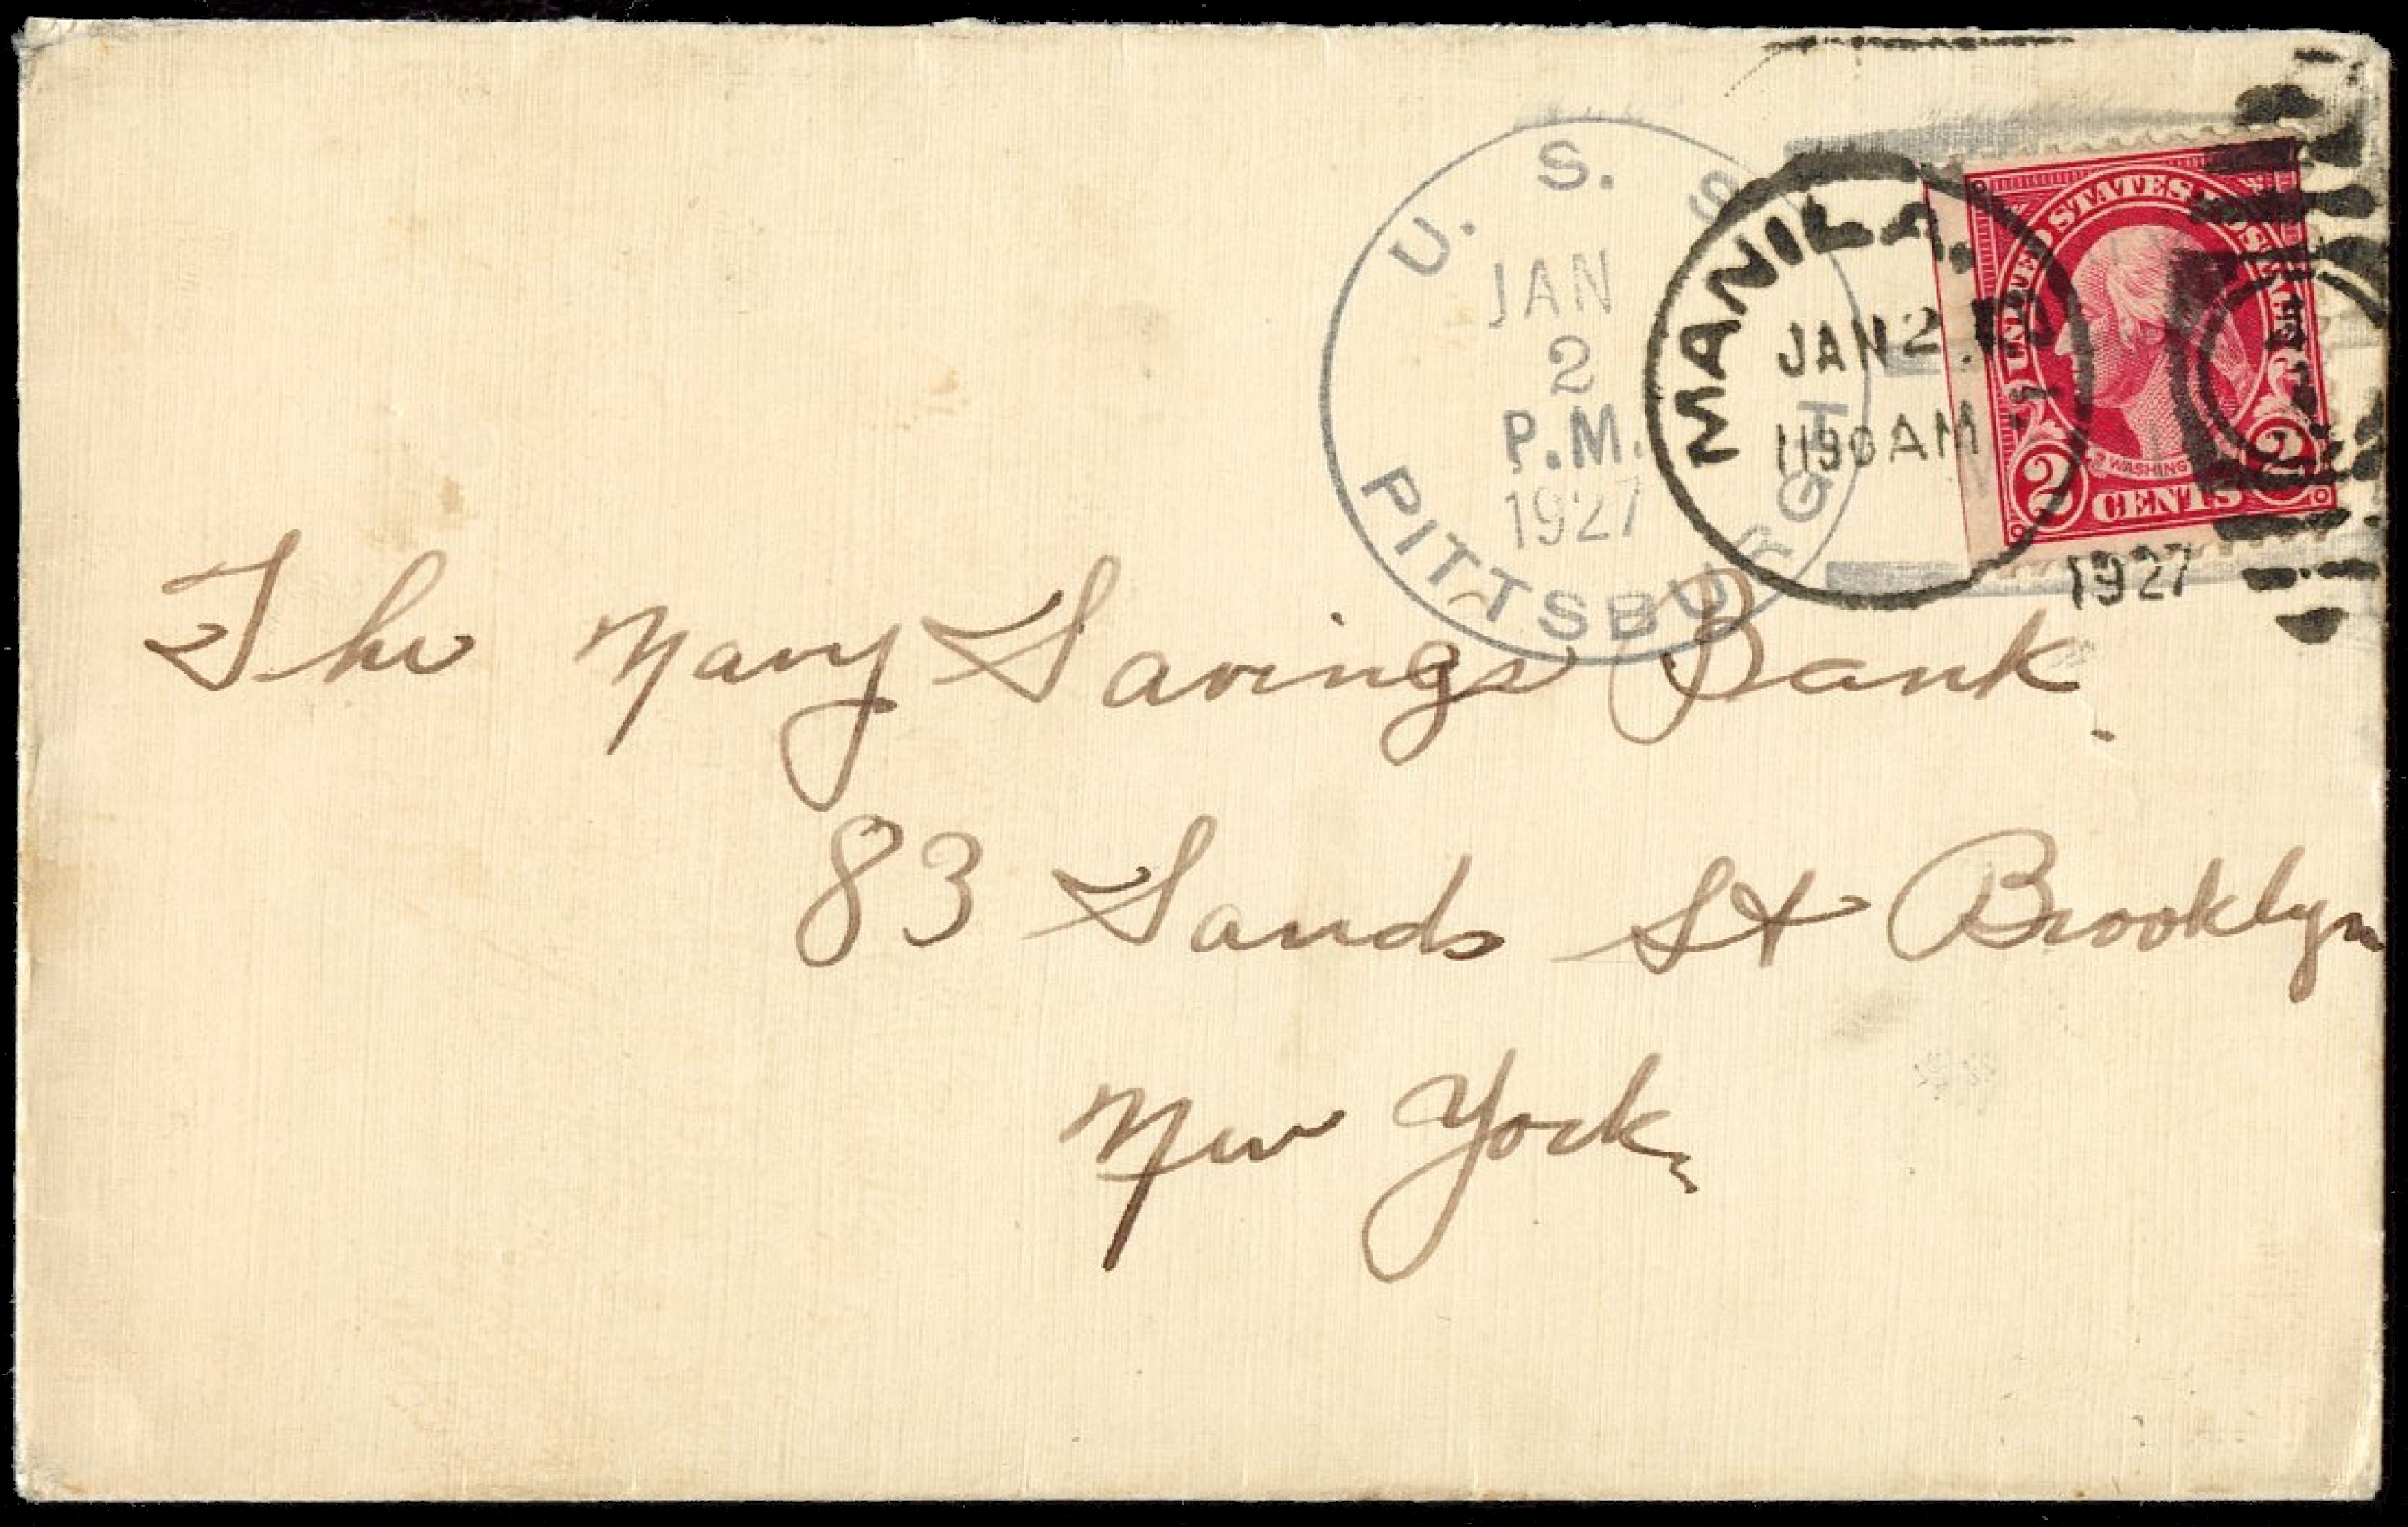 U. S. S.
JAN
2
P.M.
1927
PITTSBURGH
MANILA.
JAN 2
1130 AM
1927
UNITED STATES POSTAGE
WASHING
2 CENTS 2
The Navy Savings Bank.
83 Sands St Brooklyn
New York,